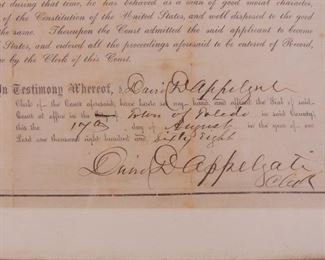 during that time, he has behaved as a man of good moral character,
of the Constitution of the United States, and well disposed to the good
the same. Thereupon the Court admitted the said applicant to become
States, and ordered all the proceedings aforesaid to be entered of Record,
by the Clerk of this Court.
In Testimony Whereof, I, David D Appelgate
Clerk of the Court aforesaid, have hereunto set my hand, and affixed the Seal of said
Court at office in the City Town of Toledo in said County,
this the 17th day of August in the year of our
Lord one thousand eight hundred and Sixty Eight
David D Appelgate
Clerk